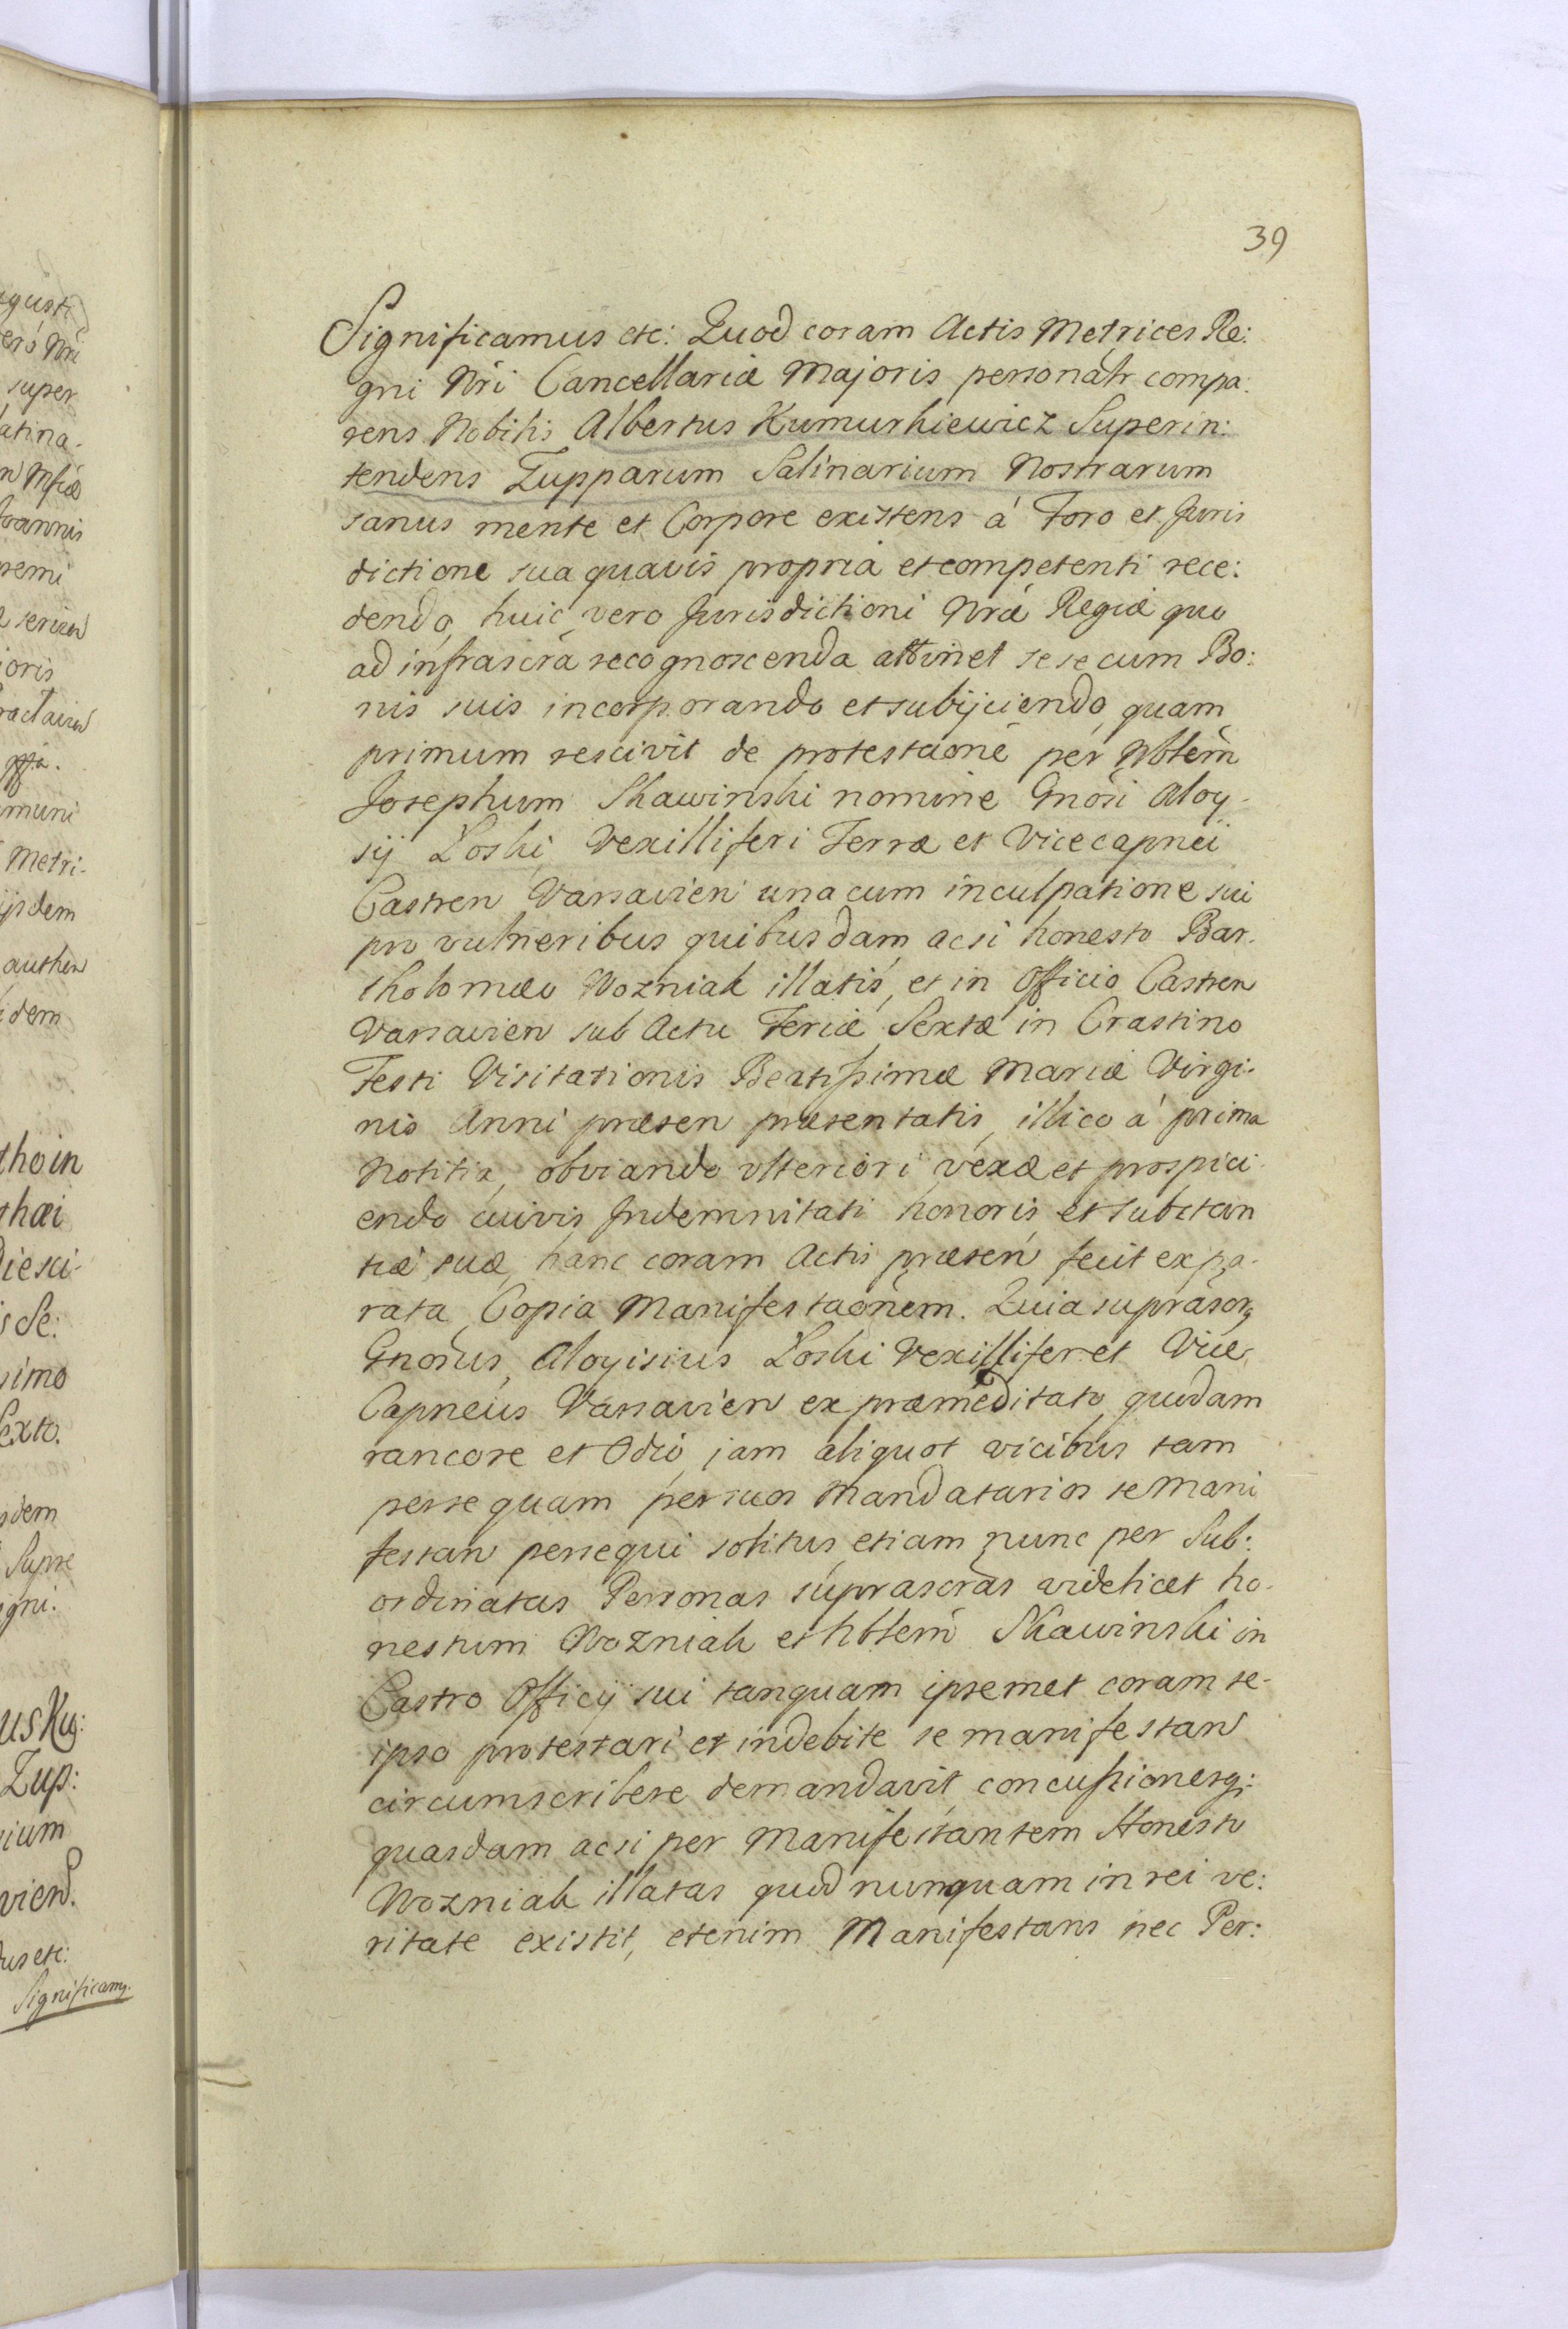 39
Significamus etc: Quod coram Actis Metrices Re:
gni Nri Cancellariæ Majoris personalr compa:
rens Nobilis Albertus Kumurkiewicz Superin:
tendens Zupparum Salinarium Nostrarum
sanus mente et Corpore existens á Foro et Juris
dictione sua quavis propria et competenti rece:
dendo, huic vero Jurisdictioni Nræ Regiæ quo
ad infrascra recognoscenda attinet sese cum Bo:
nis suis incorporando et subijciendo, quam
primum rescivit de protestaone per Nbtem
Josephum Skawinski nomine Gnosi Aloy-
sij Loski Vexilliferi Terræ et Vicecapnei
Castren Varsavien una cum inculpatione sui
pro vulneribus quibusdam acsi honesto Bar-
tholomæo Wozniak illatis, et in Officio Castren
Varsavien sub Actu Feriæ Sextæ in Crastino
Festi Visitationis Beatissimæ Mariæ Virgi-
nis Anni præsen præsentatis, illico á prima
Notitia, obviando ulteriori vexæ et prospici
endo cuivis Indemnitati honoris et substan
tiæ suæ, hanc coram Actis præsen fecit ex pa-
rata Copia Manifestaonem. Quia suprascrq
Gnosus, Aloyisius Loski Vexillifer et Vice,
Capneus Varsavien ex præmeditato quodam
rancore et Odio, jam aliquot vicibus tam
per se quam per suos Mandatarios se Mani
festan persequi solitus, etiam nunc per Sub:
ordinatas Personas suprascras videlicet ho-
nestum Wozniak et Nbtem Skawinski in
Castro Officij sui tanquam ipsemet coram se-
ipso protestari et indebite se manifestan
circumscribere demandavit, concussionesq:
quasdam acsi per Manifestantem Honesto
Wozniak illatas quod nunquam in rei ve:
ritate existit, etenim Manifestans nec Per: